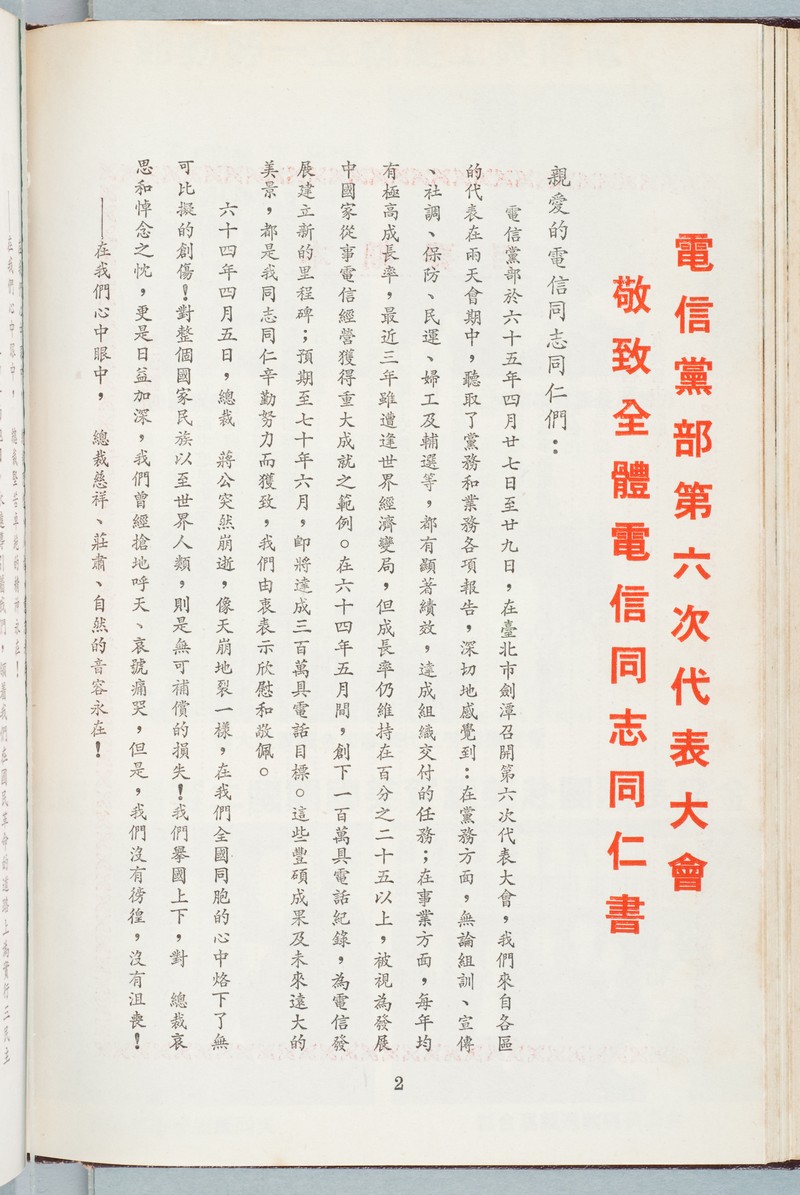 電信黨部第六次代表大會
敬致全體電信同志同仁書
親愛的電信同志同仁們：
電信黨部於六十五年四月廿七日至廿九日，在臺北市劍潭召開第六次代表大會，我們來自各區
的代表在兩天會期中，聽取了黨務和業務各項報告，深切地感覺到：在黨務方面，無論組訓、宣傳
、社調、保防、民運、婦工及輔選等，都有顯著績效，達成組織交付的任務；在事業方面，每年均
有極高成長率，最近三年雖遭逢世界經濟變局，但成長率仍維持在百分之二十五以上，被視為發展
中國家從事電信經營獲得重大成就之範例。在六十四年五月間，創下一百萬具電話紀錄，為電信發
展建立新的里程碑；預期至七十年六月，即將達成三百萬具電話目標。這些豐碩成果及未來遠大的
美景，都是我同志同仁辛勤努力而獲致，我們由衷表示欣慰和敬佩。
六十四年四月五日，總裁　蔣公突然崩逝，像天崩地裂一樣，在我們全國同胞的心中烙下了無
可比擬的創傷！對整個國家民族以至世界人類，則是無可補償的損失！我們舉國上下，對　總裁哀
思和悼念之忱，更是日益加深，我們曾經搶地呼天、哀號痛哭，但是，我們沒有徬徨，沒有沮喪！
——在我們心中眼中，　總裁慈祥、莊肅、自然的音容永在！
2
——在我們心中眼中，　總裁堅苦主絕的精神永在！